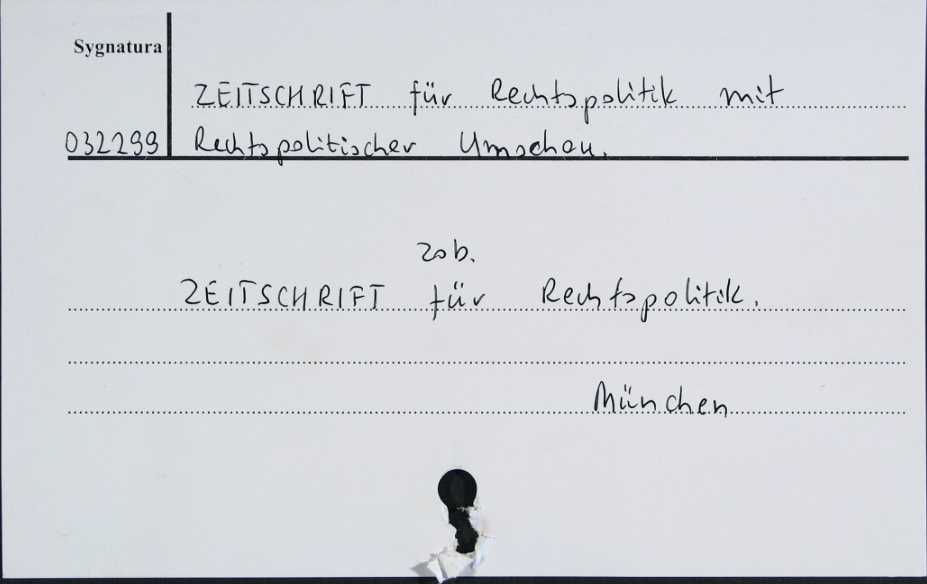 Sygnatura
ZEITSCHRIFT für Rechtspolitik mit
032299 Rechtspolitischer Umschau.
zob.
ZEITSCHRIFT für Rechtspolitik.
München